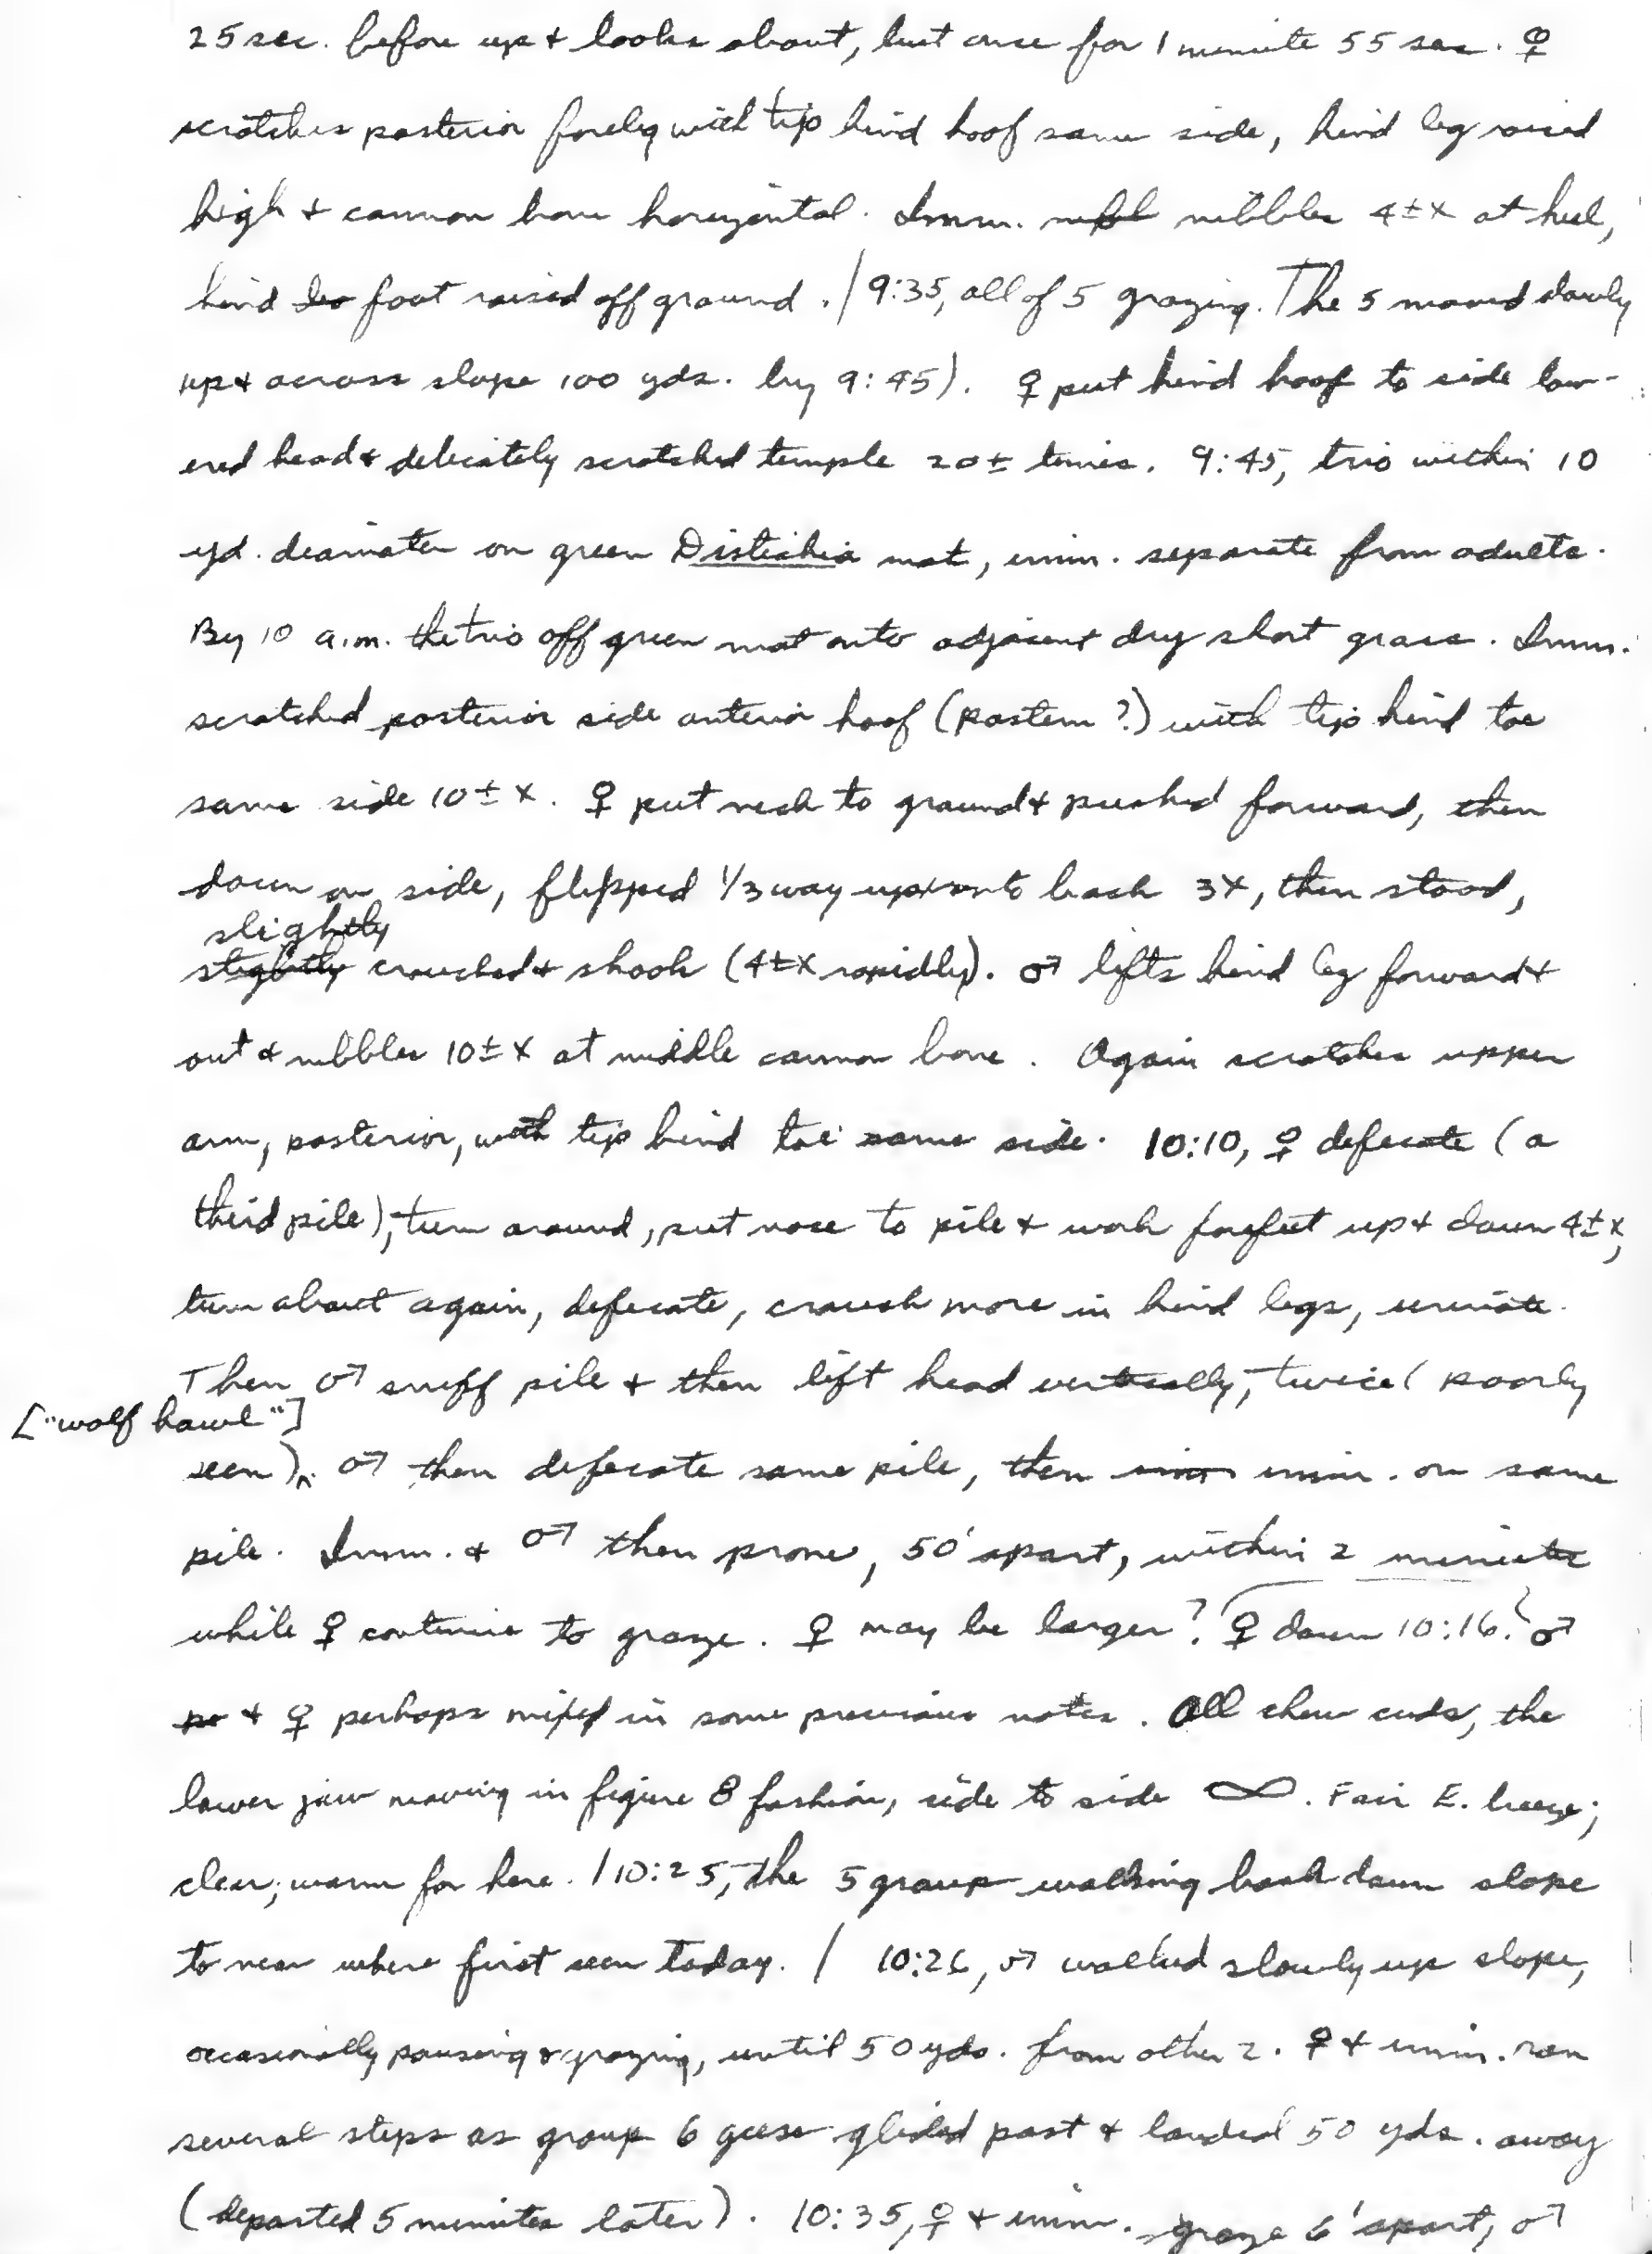 25 sec. before up & looks about, but once for 1 minute 55 sec. ♀
scratches posterior foreleg with tip hind hoof same side, hind leg raised
high & cannon bone horizontal. Imm. nibbles 4±x at heel,
hind foot raised off ground. / 9:35, all of 5 grazing. The 5 moved slowly
up & across slope 100 yds. by 9:45). ♀ put hind hoof to side low-
ered head & delicately scratched temple 20± times. 9:45, trio within 10
yd. diameter on green Distichia mat, imm. separate from adults.
By 10 a.m. the trio off green mat onto adjacent dry short grass. Imm.
scratched posterior side anterior hoof (pastern?) with tip hind toe
same side 10±x. ♀ put neck to ground & pushed forward, then
down on side, flipped 1/3 way up onto back 3x, then stood,
slightly
slightly crouched & shook (4±x rapidly). ♂ lifts hind leg forward &
out & nibbles 10±x at middle cannon bone. Again scratches upper
arm, posterior, with tip hind toe same side. 10:10, ♀ defecate (a
third pile), turn around, put nose to pile & work forefeet up & down 4±x,
turn about again, defecate, crouch more in hind legs, urinate.
Then ♂ sniff pile & then lift head vertically, twice (poorly
["wolf howl"]
seen). ♂ then defecate same pile, then imm. on same
pile. Imm. & ♂ then prone, 50' apart, within 2 minutes
while ♀ continue to graze. ♀ may be larger? ♀ down 10:16. ♂
& ♀ perhaps mixed in some previous notes. All chew cuds, the
lower jaw moving in figure 8 fashion, side to side ∞. Fair E. breeze;
clear; warm for here. / 10:25, the 5 group walking back down slope
to near where first seen today. / 10:26, ♂ walked slowly up slope,
occasionally pausing & grazing, until 50 yds. from other 2. ♀ & imm. ran
several steps as group 6 geese glided past & landed 50 yds. away
(departed 5 minutes later). 10:35, ♀ & imm. graze 6' apart, ♂